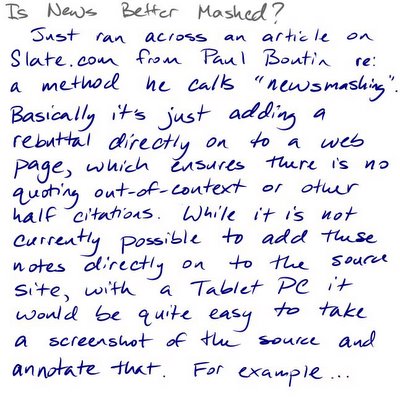 Is News Better Mashed?
Just ran across an article on
Slate.com from Paul Boutin re:
a method he calls "newsmashing".
Basically it's just adding a
rebuttal directly on to a web
page, which ensures there is no
quoting out-of-context or other
half citations. While it is not
currently possible to add these
notes directly on to the source
site, with a Tablet PC it
would be quite easy to take
a screenshot of the source and
annotate that. For example...